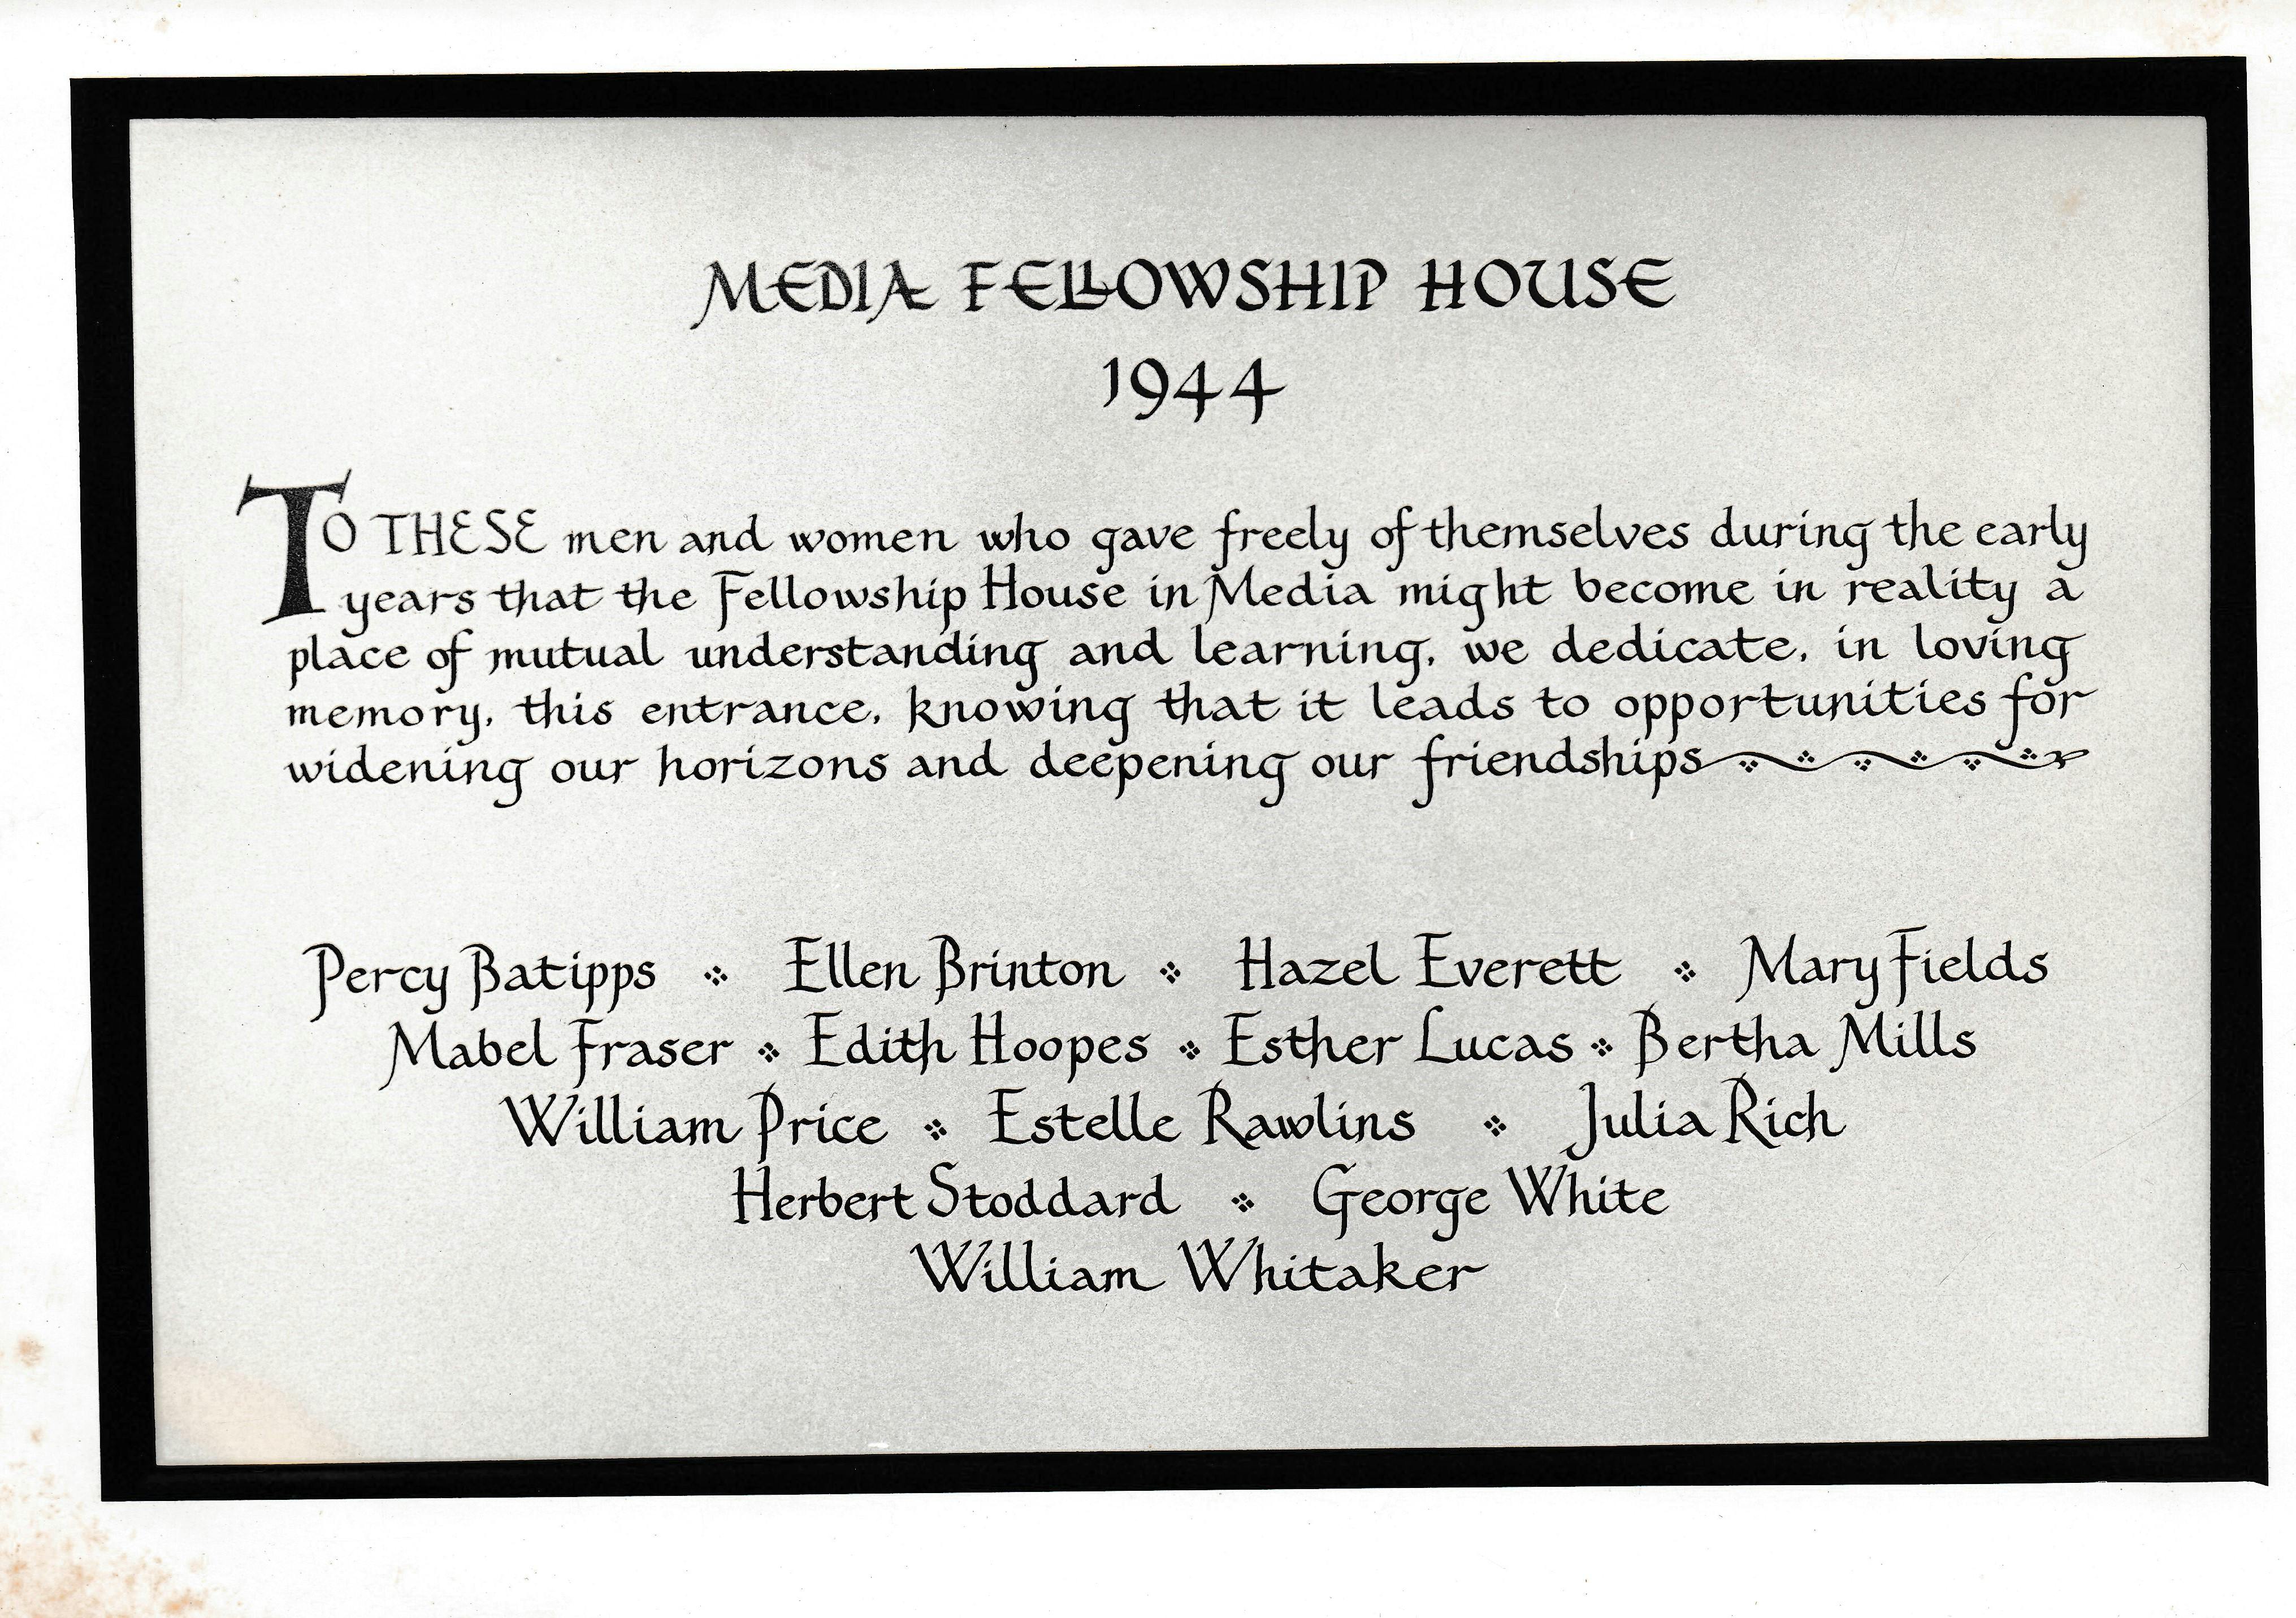 MEDIA FELLOWSHIP HOUSE
1944
TO THESE men and women who gave freely of themselves during the early
years that the Fellowship House in Media might become in reality a
place of mutual understanding and learning, we dedicate, in loving
memory, this entrance, knowing that it leads to opportunities for
widening our horizons and deepening our friendships
Percy Batipps ❖ Ellen Brinton ❖ Hazel Everett ❖ Mary Fields
Mabel Fraser ❖ Edith Hoopes ❖ Esther Lucas ❖ Bertha Mills
William Price ❖ Estelle Rawlins ❖ Julia Rich
Herbert Stoddard ❖ George White
William Whitaker